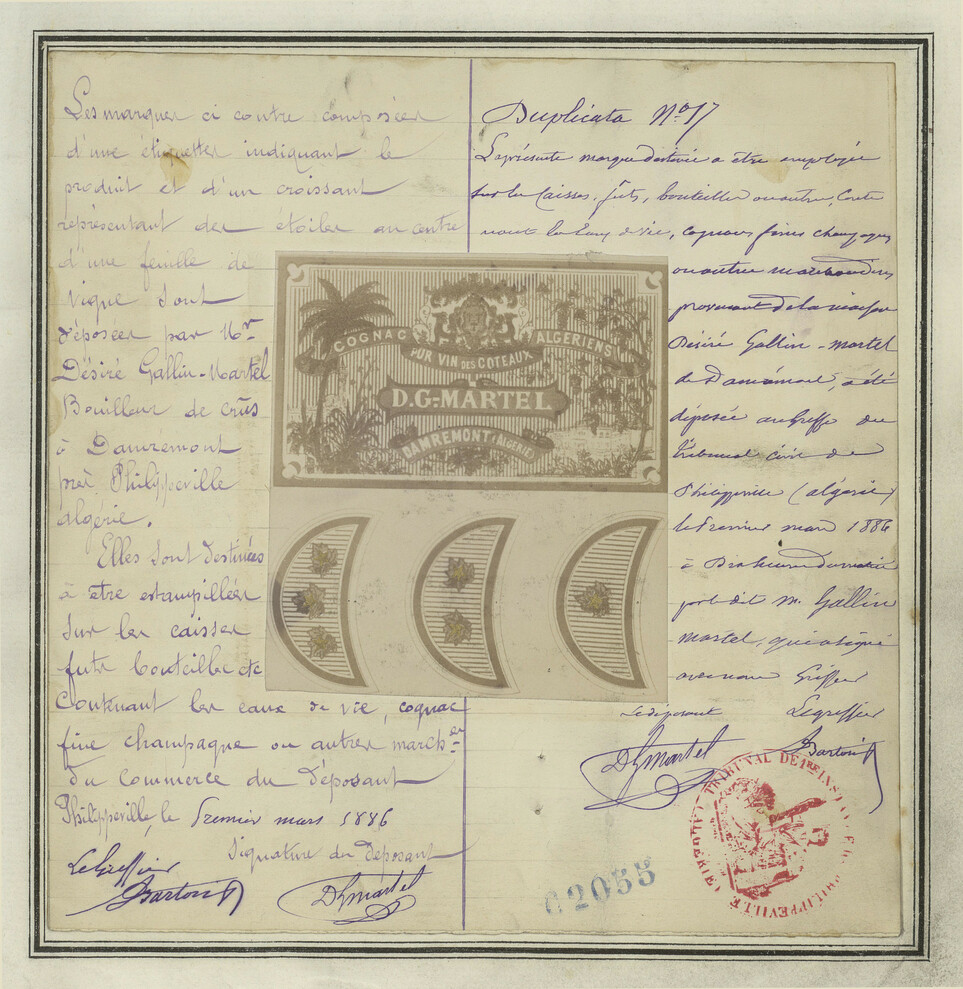 Les marques ci contre composées
d'une étiquettes indiquant le
produit et d'un croissant
représentant des étoiles au centre
d'une feuille de
vigne sont
déposées par Mr
Désiré Gallin-Martel
Bouilleur de crûs
à Damrémont
près Philippeville
algérie.
Elles sont destinées
à être estampillées
sur les caisses
futs bouteilles etc
Contenant les eaux de vie, cognac
fine champagne ou autres march.es
du commerce du déposant
Philippeville, le Premier mars 1886
Signature du déposant
Le Greffier
Bartoni
DGmartel
Duplicata No 17
La présente marque destinée a être employée
sur les caisses, fûts, bouteilles ou autres, Conte
nant les Eaux de vie, cognacs fines champagnes
ou autres marchandises
provenant de la maison
Désiré Gallin-martel
de Damrémont, a été
déposée au Greffe du
Tribunal civil de
Philippeville (algérie)
le Premier mars 1886
à heure
par le dit M. Gallin
martel, qui a signé
avec nous Greffier
Le déposant Le greffier
DGmartel Bartoni
COGNAC ALGERIENS
PUR VIN DES COTEAUX
D.G-MARTEL
DAMREMONT (ALGERIE)
TRIBUNAL DE 1RE INST
PHILIPPEVILLE
02055